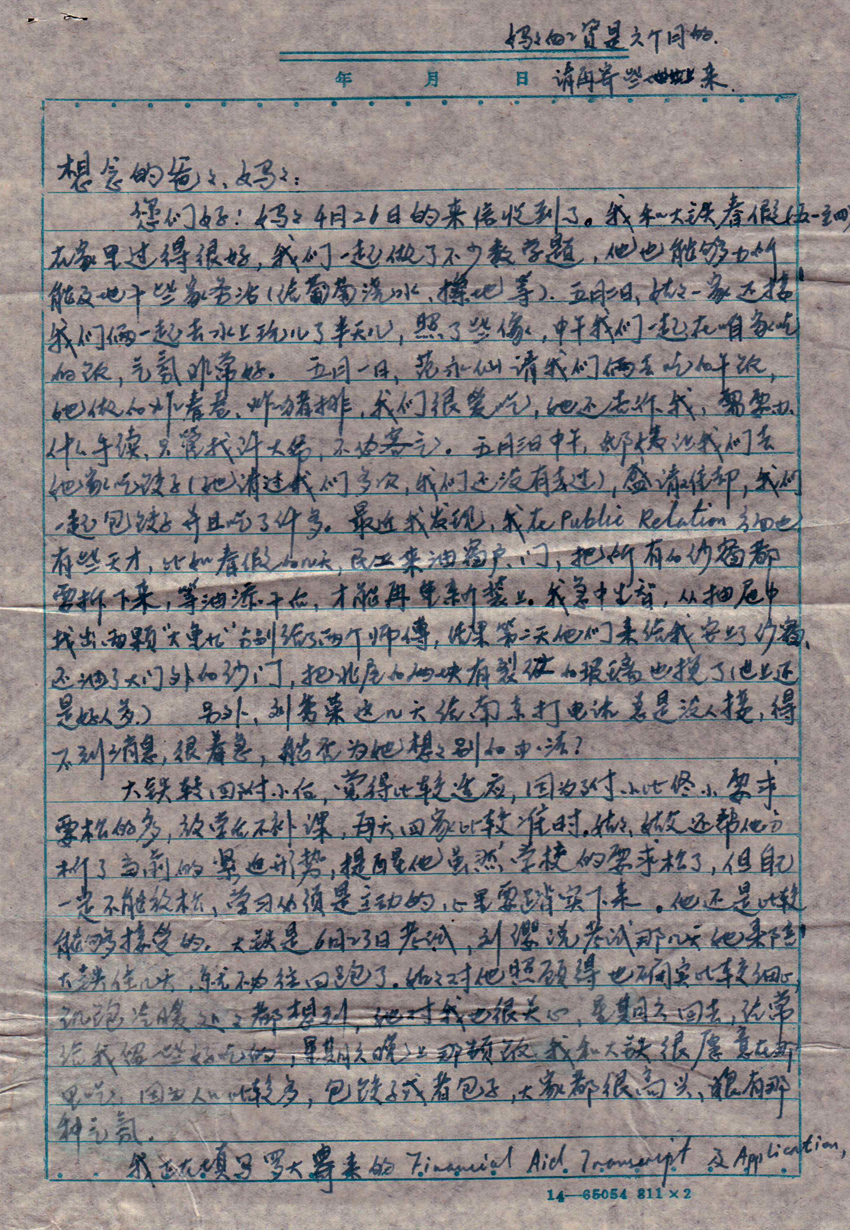 妈妈的工资是六个月的.
请再寄些来.
年 月 日
想念的爸爸、妈妈:
您们好!妈妈4月26日的来信收到了。我和大铁春假(五一至四)
在家里过得很好,我们一起做了不少数学题,他也能够力所
能及地干些家务活(给葡萄浇水、擦地等).五月二日,姑姑一家还接
我们俩一起去水上玩儿了半天儿,照了些像,中午我们一起在咱家吃
的饭,气氛非常好。五月一日,范永仙请我们俩去吃的午饭,
她做的炸春卷、炸猪排,我们很爱吃,她还告诉我,需要办
什么手续,只管找许大伯,不必客气。五月三日中午,让我们去
她家吃饺子(她请过我们多次,我们还没有去过),盛请难却,我们
一起包饺子并且吃了许多。最近我发现,我在Public Relation方面也
有些天才,比如春假的几天,民工来油窗户、门,把所有的纱窗都
要拆下来,等油漆干后,才能再重新装上。我急中生智,从抽屉中
找出两颗"大重九"分别给了两个师傅,结果第二天他们来给我安上了纱窗,
还油了大门外的纱门,把北屋的两块有裂纹的玻璃也换了(世上还
是好人多。) 另外,刘秀菜这几天给南京打电话总是没人接,得
不到消息,很着急,能否为她想想别的办法?
大铁转回附小后,觉得比较适应,因为附小比佟小要求
要松的多,放学后不补课,每天回家比较准时.姑姑、姑父还帮他分
析了当前的紧迫形势,提醒他虽然学校的要求松了,但自己
一定不能放松,学习必须是主动的,心里要踏实下来。他还是比较
能够接受的.大铁是6月23日考试,刘缨说考试那几天他来陪
大铁住几天,就不必往回跑了。姑姑对他照顾得也确实比较细心,
饥饱冷暖处处都想到,她对我也很关心,星期六回去,经常
给我留些好吃的,星期六晚上那顿饭我和大铁很愿意在那
里吃,因为人比较多,包饺子或者包子,大家都很高兴,很有那
种气氛.
我正在填写罗大寄来的Financial Aid Transcript及Application,
14—65054 811×2